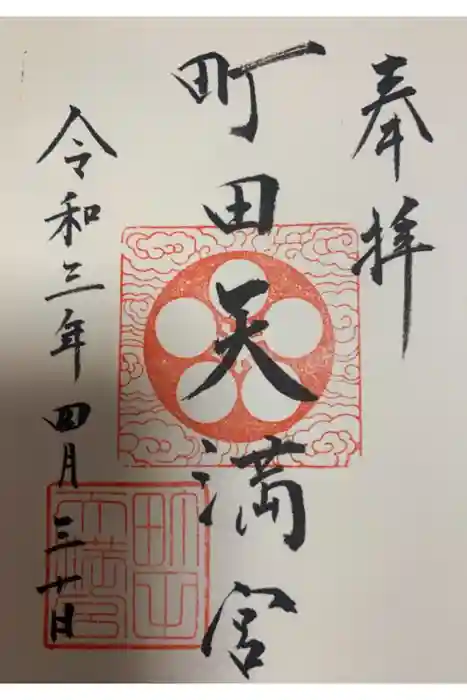 奉拝
町田天満宮
令和三年四月三十日
町田天満宮